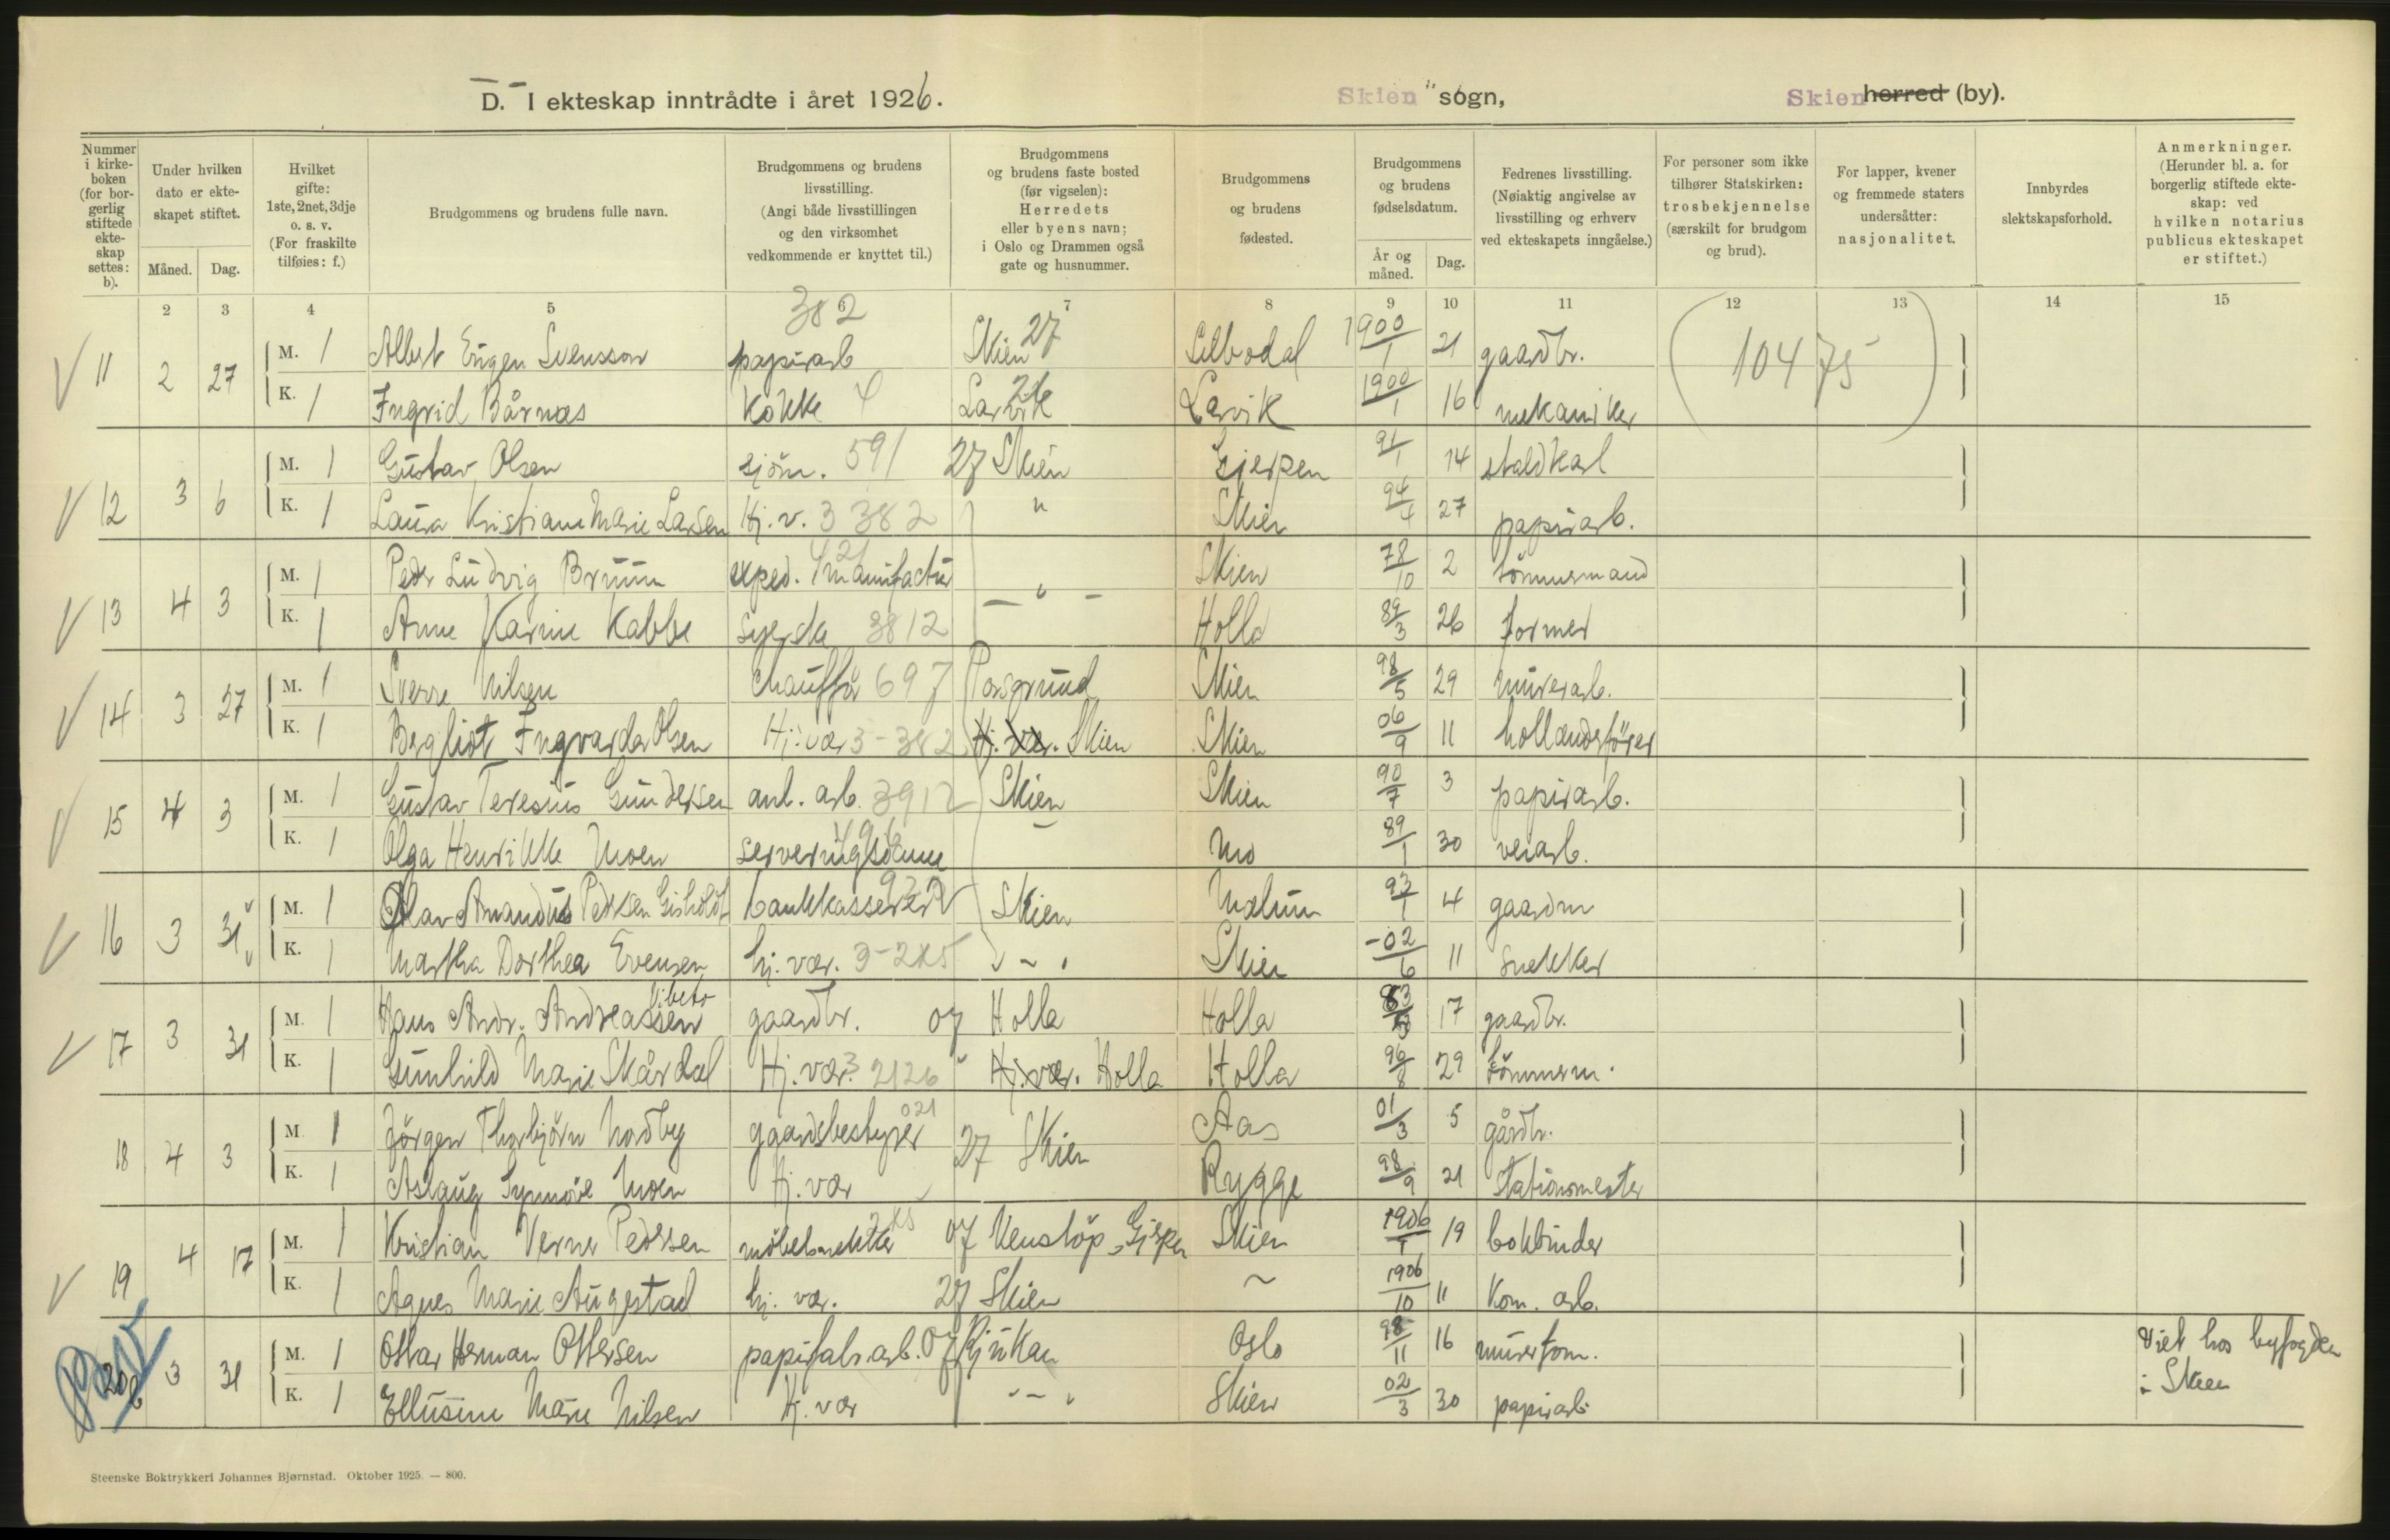 D. I ekteskap inntrådte i året 1926. Skien sogn, Skien herred (by).
Nummer i kirkeboken (for borgerlig stiftede ekteskap settes: b).
Under hvilken dato er ekteskapet stiftet.
Måned. Dag.
Hvilket gifte: 1ste, 2net, 3dje o. s. v. (For fraskilte tilføies: f.)
Brudgommens og brudens fulle navn.
Brudgommens og brudens livsstilling. (Angi både livsstillingen og den virksomhet vedkommende er knyttet til.)
Brudgommens og brudens faste bosted (før vigselen): Herredets eller byens navn; i Oslo og Drammen også gate og husnummer.
Brudgommens og brudens fødested.
Brudgommens og brudens fødselsdatum.
År og måned. Dag.
Fedrenes livsstilling. (Nøiaktig angivelse av livsstilling og erhverv ved ekteskapets inngåelse.)
For personer som ikke tilhører Statskirken: trosbekjennelse (særskilt for brudgom og brud).
For lapper, kvener og fremmede staters undersåtter: nasjonalitet.
Innbyrdes slektskapsforhold.
Anmerkninger. (Herunder bl. a. for borgerlig stiftede ekteskap: ved hvilken notarius publicus ekteskapet er stiftet.)
2 3 4 5 6 7 8 9 10 11 12 13 14 15
382 27
11 2 27 M. 1 Albert Eugen Svensson papirarb Skien Silbodal 1900/1 21 gaardbr. (10475)
K. 1 Ingrid Bårnæs Kokke 4 Larvik 26 Larvik 1900/1 16 mekaniker
12 3 6 M. 1 Gustav Olsen sjöm. 591 27 Skien Gjerpen 91/1 14 staldkarl
K. 1 Laura Kristiane Marie Larsen Hj. v. 3 382 " Skien 94/4 27 papirarb.
13 4 3 M. 1 Peder Ludvig Bruun exped. i manufactur - " - Skien 78/10 2 tömmermand
K. 1 Anne Karine Kabbe syerske 3812 Holla 89/3 26 former
14 3 27 M. 1 Sverre Nilsen chauffør 697 Porsgrund Skien 98/5 29 murerarb.
K. 1 Bergliot Ingvarda Olsen Hj. vær 3-382 Hj. vær. Skien Skien 06/9 11 hollænderförer
15 4 3 M. 1 Gustav Teresius Gundersen anl. arb. 3912 Skien Skien 90/7 3 papirarb.
K. 1 Olga Henrikke Moen serveringsdame - Mo 89/1 30 veiarb.
16 3 31 M. 1 Olav Amandus Pedersen Gisholdt bankkasserer Skien Mælum 93/1 4 gaardm
K. 1 Martha Dorthea Evensen hj. vær. 3-285 " - " Skien -02/6 11 snekker
17 3 31 M. 1 Hans Andr. Andreassen Vibeto gaardbr. 07 Holla Holla 83 17 gaardbr.
K. 1 Gunhild Marie Skårdal Hj. vær. 3 2126 Hj. vær. Holla Holla 96/8 29 tömmerm.
18 4 3 M. 1 Jörgen Thorbjörn Nordby gaardsbestyrer 021 27 Skien Aas 01/3 5 gårdbr.
K. 1 Aslaug Synnøve Moen Hj. vær Rygge 98/9 21 stationsmester
19 4 17 M. 1 Kristian Verner Pedersen möbelsnekker 285 07 Venstöp, Gjerpen Skien 1906/1 19 bokbinder
K. 1 Agnes Marie Augestad hj. vær. 27 Skien ~ 1906/10 11 Kom. arb.
20 b 3 31 M. 1 Ottar Herman Ottersen papirfabr.arb. 07 Rjukan Oslo 98/11 16 murerform. Viet hos byfogden
K. 1 Ellusine Marie Nilsen Hj. vær " - " Skien 02/3 30 papirarb. i Skien
Steenske Boktrykkeri Johannes Bjørnstad. Oktober 1925. — 800.